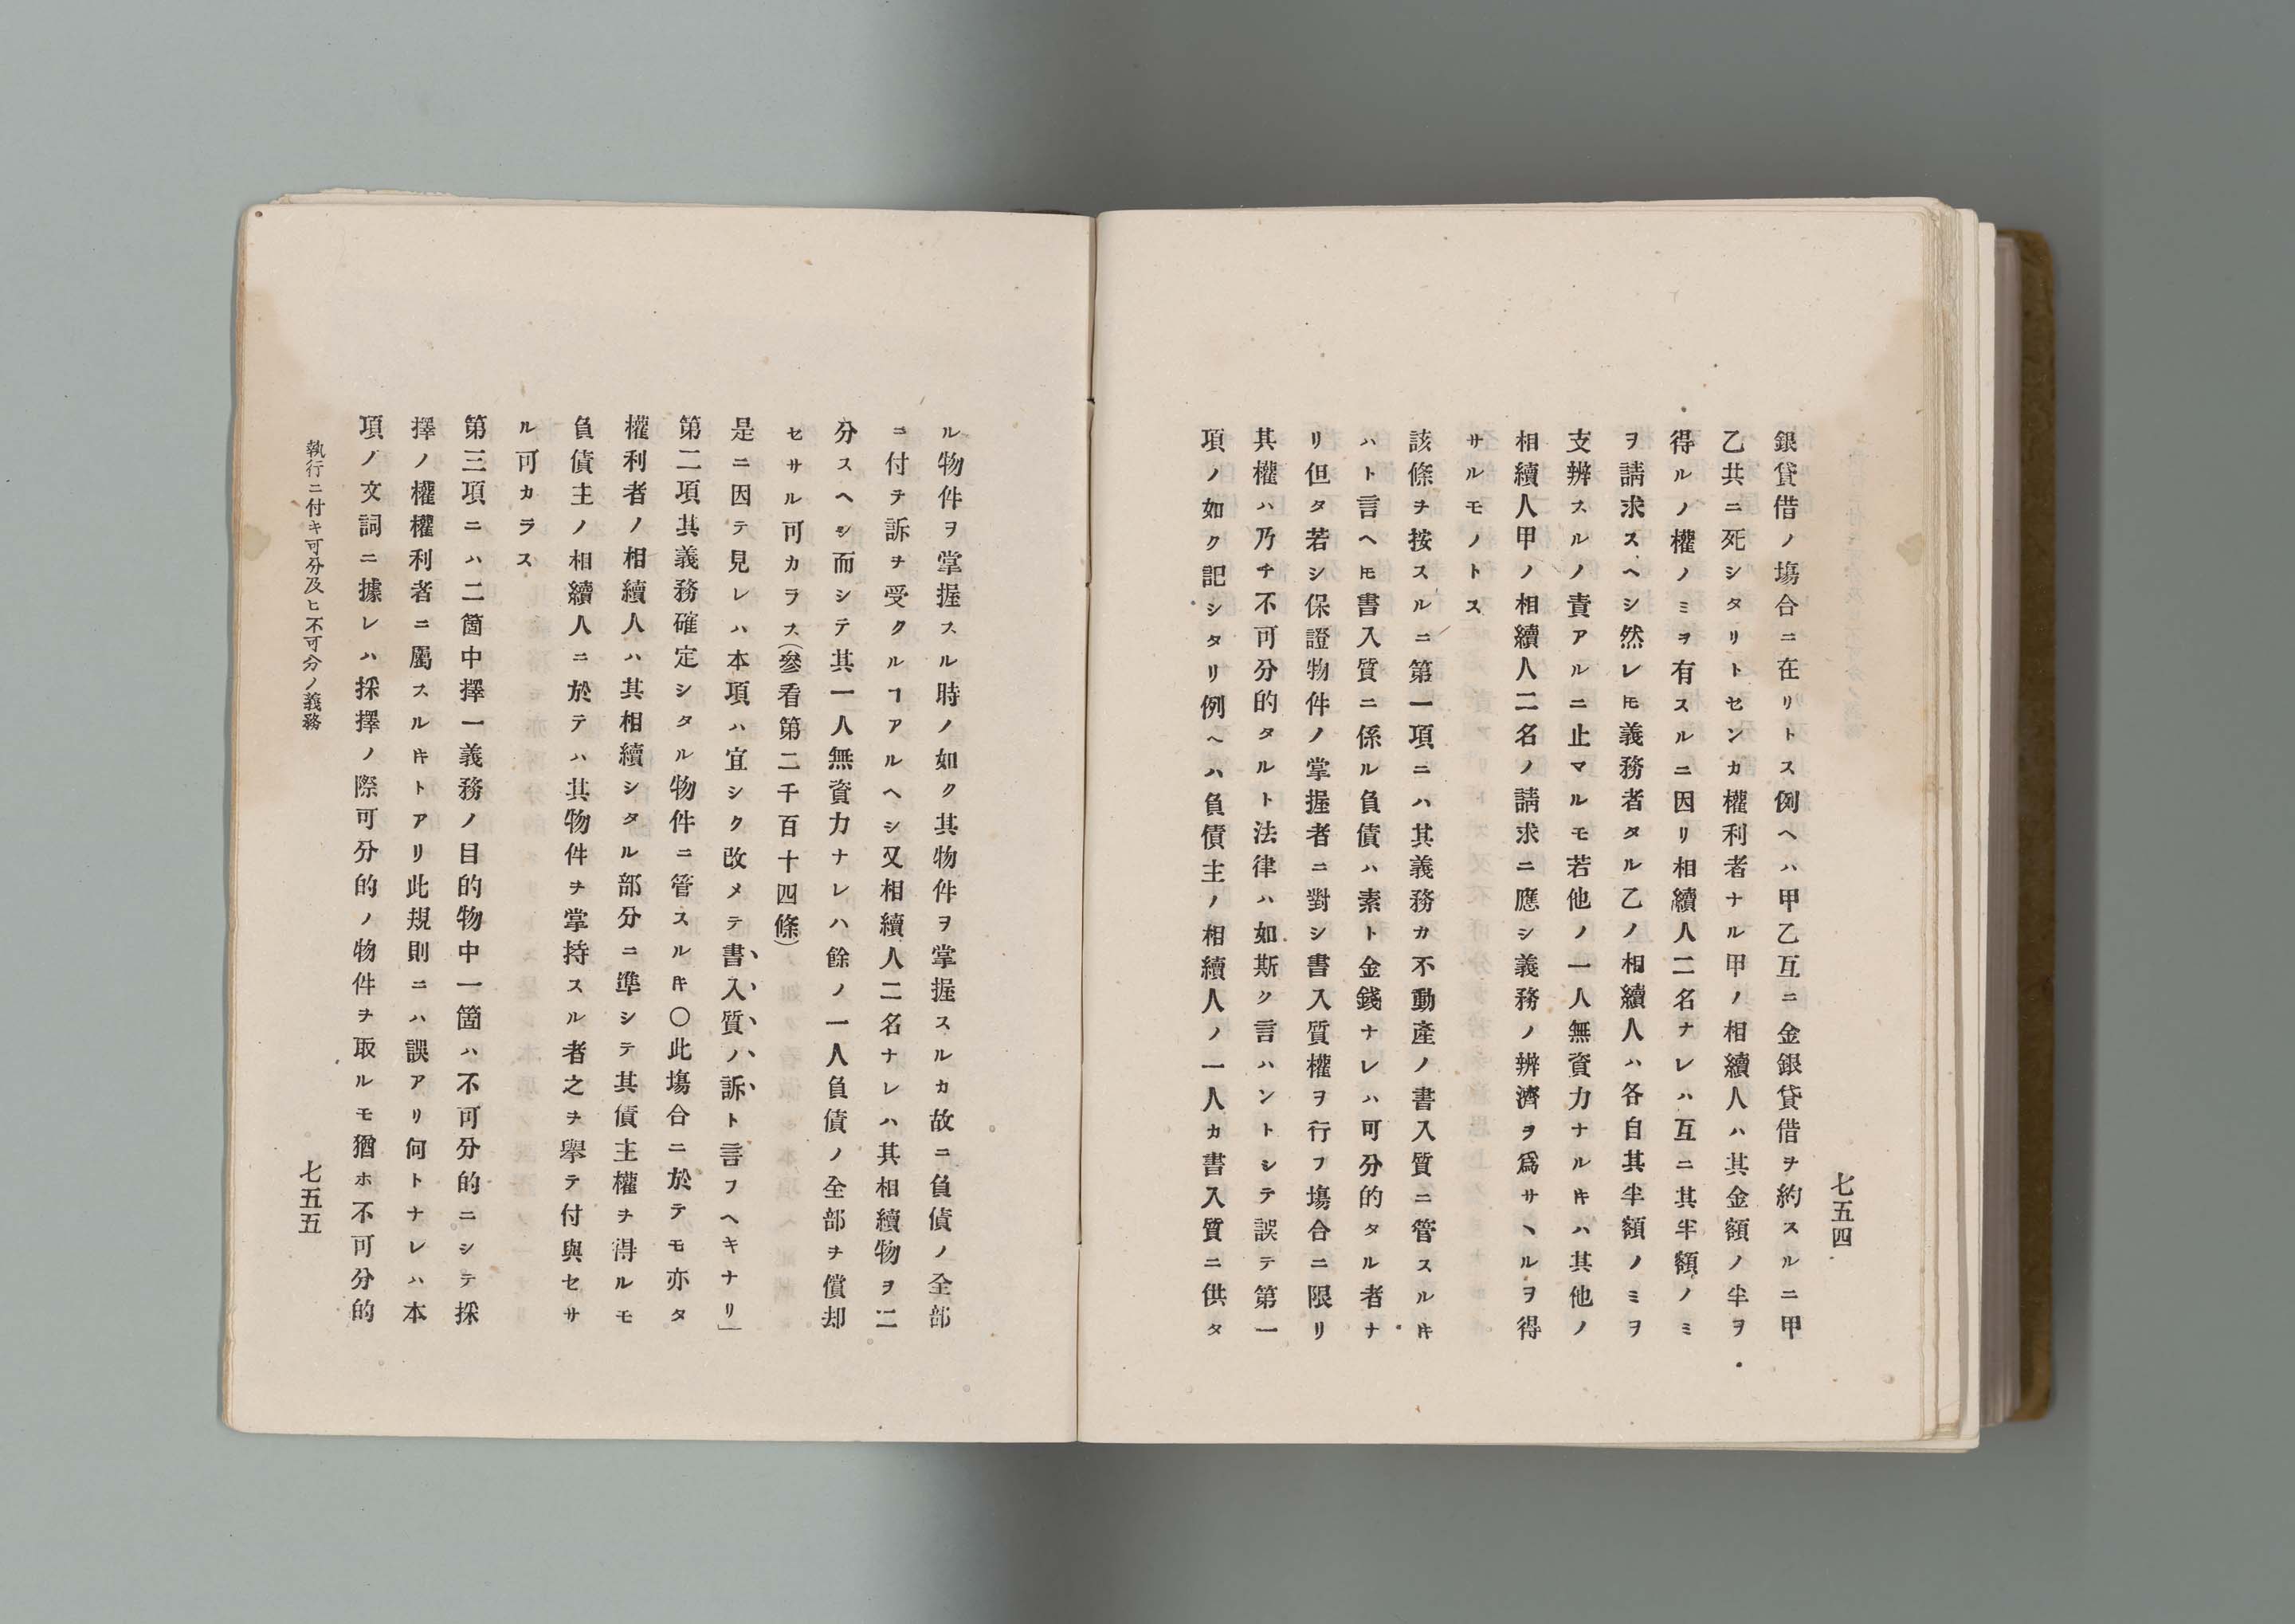 七五四
銀貸借ノ塲合ニ在リトス例ヘハ甲乙互ニ金銀貸借ヲ約スルニ甲
乙共ニ死シタリトセンカ權利者ナル甲ノ相續人ハ其金額ノ半ヲ
得ルノ權ノミヲ有スルニ因リ相續人二名ナレハ互ニ其半額ノミ
ヲ請求スヘシ然レ𪜈義務者タル乙ノ相續人ハ各自其半額ノミヲ
支辨スルノ責アルニ止マルモ若他ノ一人無資力ナルキハ其他ノ
相續人甲ノ相續人二名ノ請求ニ應シ義務ノ辨濟ヲ爲サヽルヲ得
サルモノトス
該條ヲ按スルニ第一項ニハ其義務カ不動產ノ書入質ニ管スル𪜈
ハト言ヘ𪜈書入質ニ係ル負債ハ素ト金錢ナレハ可分的タル者ナ
リ但タ若シ保證物件ノ掌握者ニ對シ書入質權ヲ行フ塲合ニ限リ
其權ハ乃チ不可分的タルト法律ハ如斯ク言ハントシテ誤テ第一
項ノ如ク記シタリ例ヘハ負債主ノ相續人ノ一人カ書入質ニ供タ
ル物件ヲ掌握スル時ノ如ク其物件ヲ掌握スルカ故ニ負債ノ全部
ニ付ヲ訴ヲ受クルヿアルヘシ又相續人二名ナレハ其相續物ヲ二
分スヘシ而シテ其一人無資力ナレハ餘ノ一人負債ノ全部ヲ償却
セサル可カラス(參看第二千百十四條)
是ニ因テ見レハ本項ハ宜シク改メテ書入質ノ訴ト言フヘキナリ」
第二項其義務確定シタル物件ニ管スル𪜈〇此塲合ニ於テモ亦タ
權利者ノ相續人ハ其相續シタル部分ニ準シテ其債主權ヲ得ルモ
負債主ノ相續人ニ於テハ其物件ヲ掌持スル者之ヲ擧テ付與セサ
ル可カラス
第三項ニハ二箇中擇一義務ノ目的物中一箇ハ不可分的ニシテ採
擇ノ權權利者ニ屬スル𪜈トアリ此規則ニハ誤アリ何トナレハ本
項ノ文詞ニ據レハ採擇ノ際可分的ノ物件ヲ取ルモ猶ホ不可分的
執行ニ付キ可分及ヒ不可分ノ義務
七五五